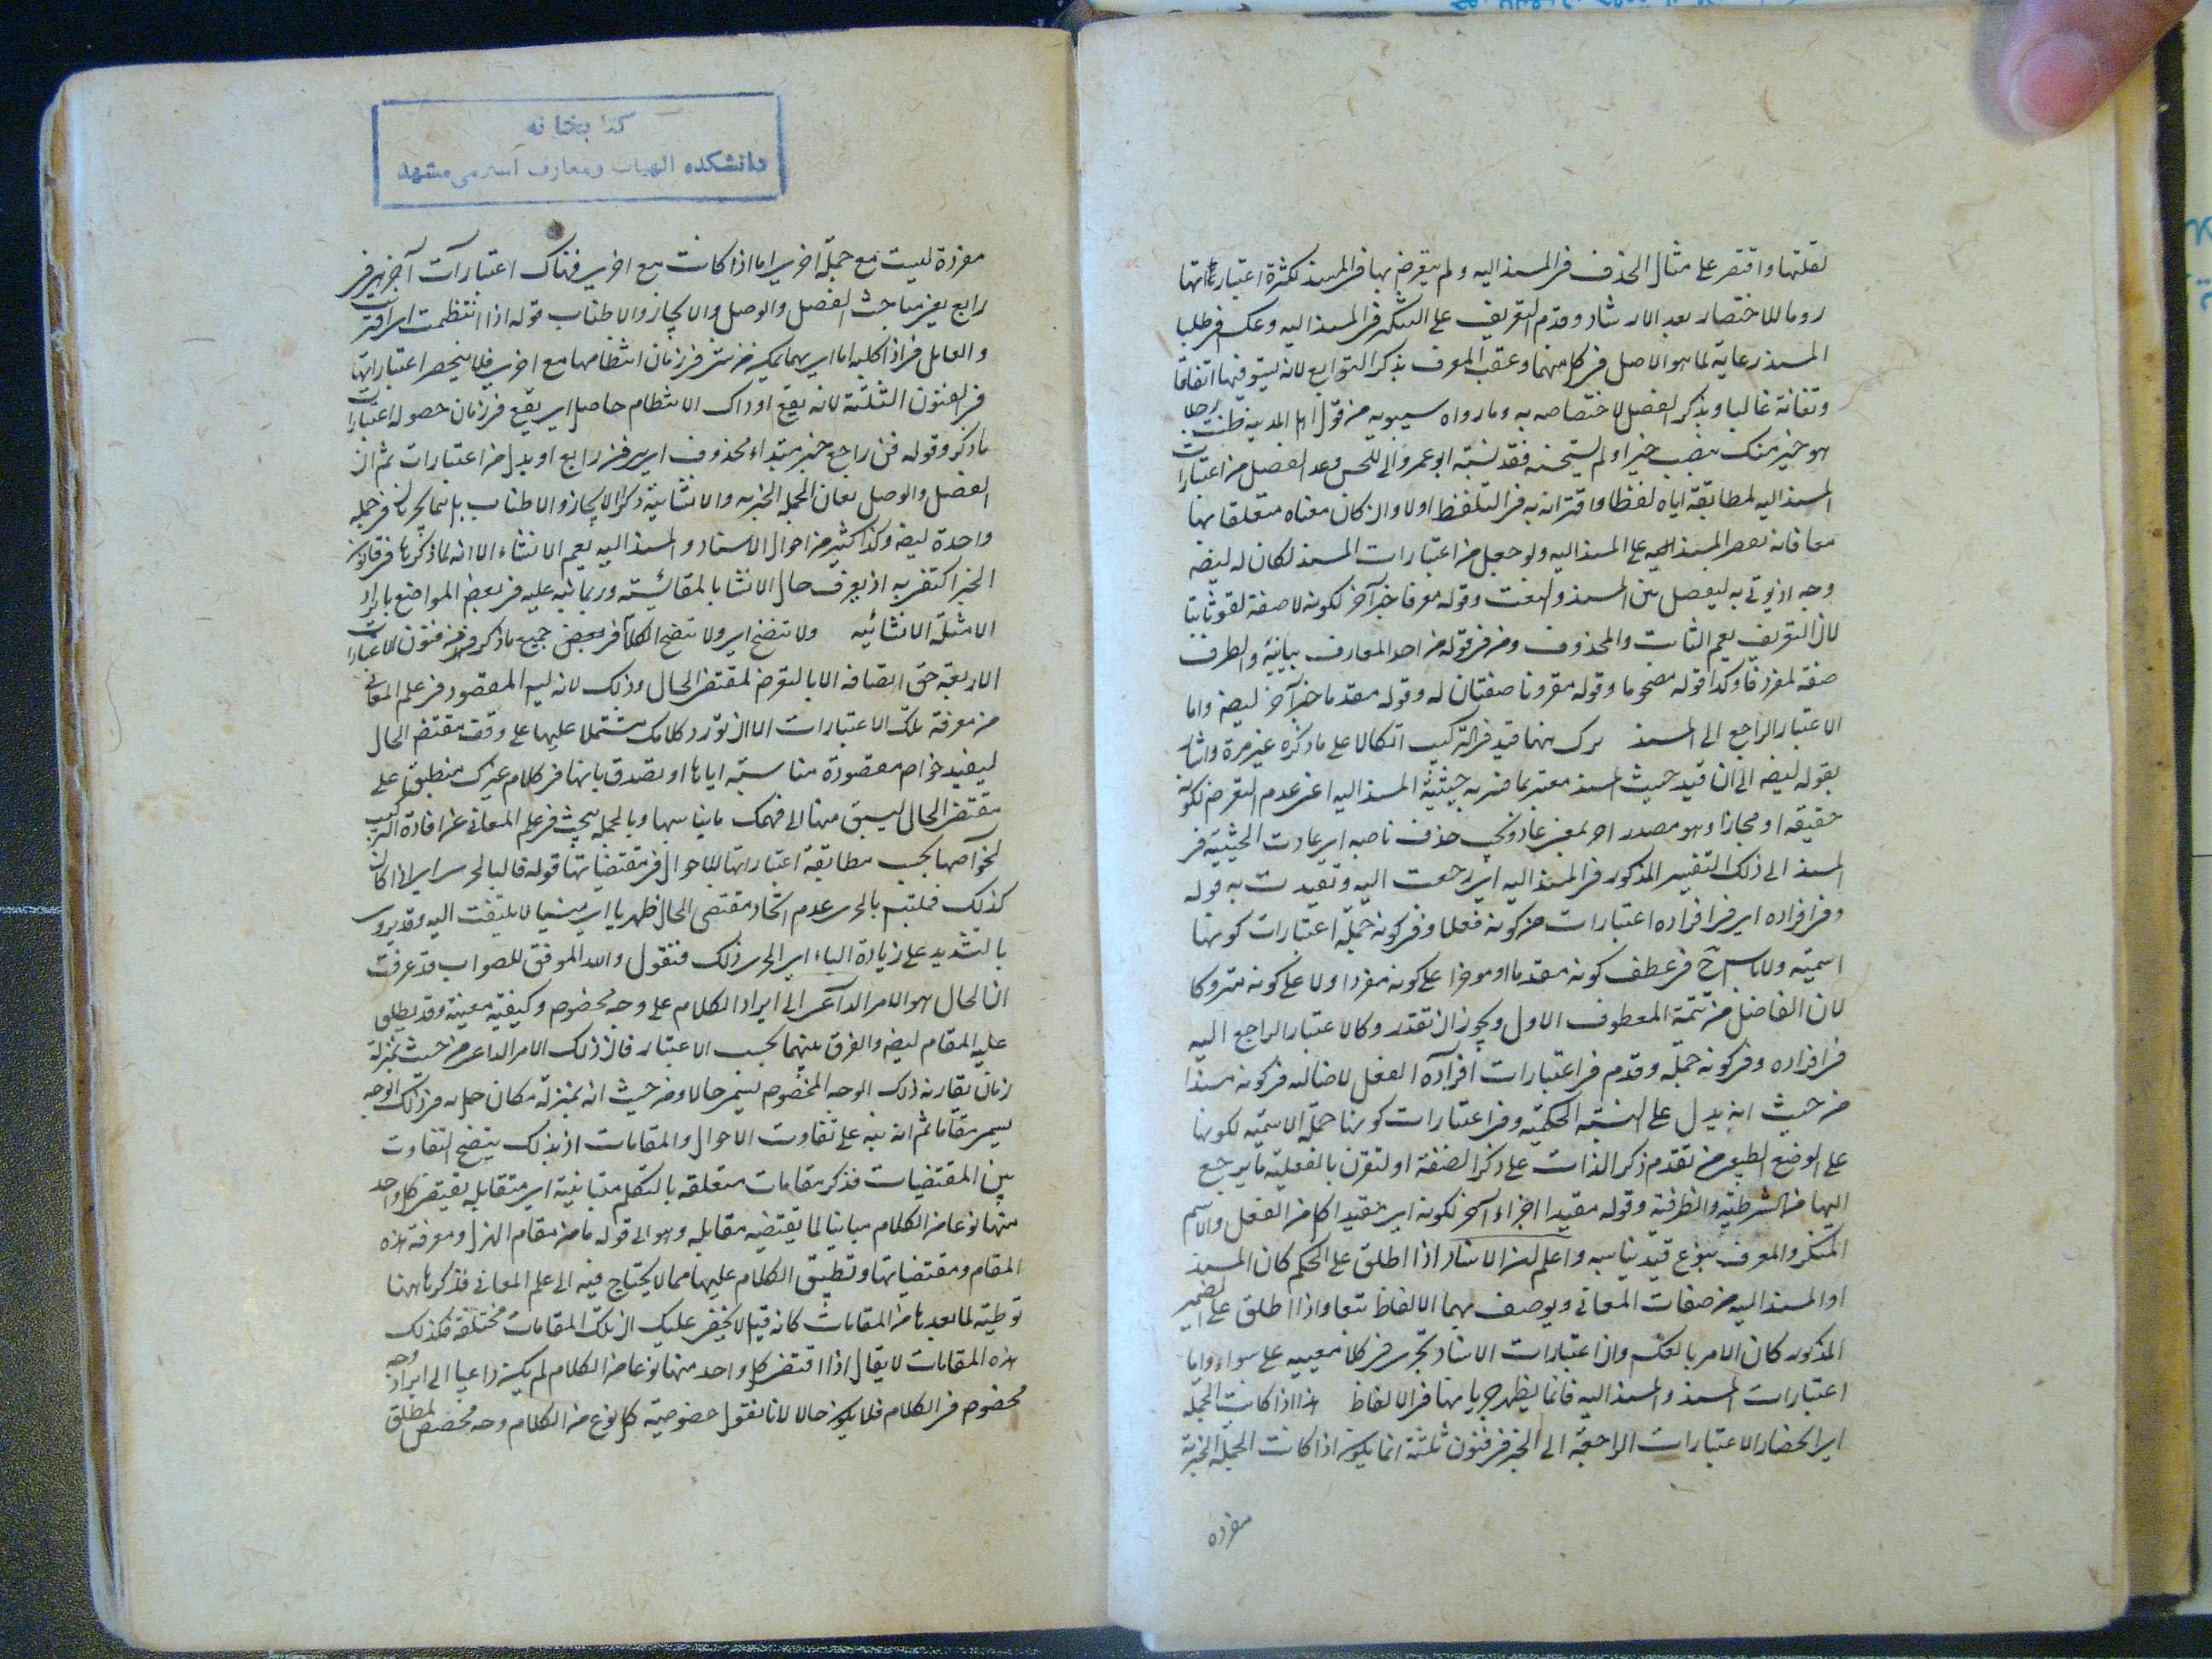 لقلتها واقتصر على مثال الحذف فى المسند اليه ولم يتعرض بها فى المسند لكثرة اعتباراتها
روما للاختصار بعد الارشاد وقدم التعريف على التنكير فى المسند اليه وعكس فى طلبا
المسند رعاية لما هو الاصل فى كل منهما وعقب المعرف بذكر التوابع لانه يستوفيها اتفاقا
غالبا وبذكر الفصل لاختصاصه به وما رواه سيبويه من قول اهل المدينة ظننت رجلا
هو خير منك بنصب خير او لم يستحسنه فقد نسبه ابو عمرو الى اللحن وعد الفصل من اعتبارات
المسند اليه لمطابقة اياه لفظا واقترانه به فى التلفظ اولا وان كان معناه متعلقا بهما
معا فانه يقصر المسند على المسند اليه ولو جعل من اعتبارات المسند لكان له ايضا
وجه اذ يؤتى به ليفصل بين المسند والنعت وقوله معرفا خبر آخر لكونه لا صفة لقوله ثابتا
لان التعريف يعم الثابت والمحذوف ومن فى قوله من احد المعارف بيانية والظرف
صفة لمعرفا وكذا قوله مصحوبا وقوله مقرونا صفتان له وقوله مقدما خبر آخر ايضا واما
الاعتبار الراجع الى المسند ترك منها قيد فى التركيب اتكالا على ما ذكره غير مرة واشار
بقوله ايضا الى ان قيد حيث المسند معتبر بما فسر به حيثية المسند اليه اعنى عدم التعرض لكونه
حقيقة او مجازا وهو مصدر اض بمعنى عاد ويجب حذف ناصبه اى عادت الحيثية فى
المسند الى ذلك التفسير المذكور فى المسند اليه اى رجعت اليه وتقيدت به قوله
وفى افراده اى فى افراده اعتبارات من كونه فعلا وفى كونه جملة اعتبارات كونها
اسمية ولا باس ح فى عطف كونه مقدما او مؤخرا على كونه مفردا ولا على كونه متروكا
لان الفاصل من تتمة المعطوف الاول ويجوز ان تقدر وكالاعتبار الراجع اليه
فى افراده وفى كونه جملة وقدم فى اعتبارات افراده الفعل لاصالته فى كونه مسندا
من حيث انه يدل على النسبة الحكمية وفى اعتبارات كونها جملة الاسمية لكونها
على الوضع الطبيعى من تقدم ذكر الذات على ذكر الصفة او لتقرن بالفعلية ما يرجع
اليها من الشرطية والظرفية وقوله مقيدا اجزاء آخر لكونه اى مقيدا كل من الفعل والاسم
المنكر والمعرف بنوع قيد يناسبه واعلم ان الاسناد اذا اطلق على الحكم كان المسند
او المسند اليه من صفات المعانى ويوصف بهما الالفاظ تبعا واذا اطلق على الضمير
المذكور كان الامر بالعكس وان اعتبارات الاسناد تجرى فى كلا معنييه على سواء واما
اعتبارات المسند والمسند اليه فانما يظهر جريانها فى الالفاظ هذا اذا كانت الجملة
اى انحصار الاعتبارات الراجعة الى الخبر فى فنون ثلثة انما يكون اذا كانت الجملة الخبرية
مفردة
كتابخانه
دانشكده الهيات ومعارف اسلامى مشهد
مفردة ليست مع جملة اخرى اما اذا كانت مع اخرى فهناك اعتبارات آخر هى فن
رابع يعنى مباحث الفصل والوصل والايجاز والاطناب قوله اذا انتظمت اى اقترنت
والعامل فى اذا كلمة اما اى مهما يكن من شئ فى زمان انتظامها مع اخرى فلا ينحصر اعتباراتها
فى الفنون الثلثة لانه يقع اذ ذاك الانتظام حاصل اى يقع فى زمان حصوله اعتبارات
ما ذكر وقوله فن رابع خبر مبتداء محذوف اى هى فن رابع او بدل من اعتبارات ثم ان
الفصل والوصل يعمان الجملة الخبرية والانشائية وكذا الايجاز والاطناب بل هما يجريان فى جملة
واحدة ايضا وكذا كثير من احوال الاسناد والمسند اليه يعم الانشاء الا انه لما ذكرها فى قانون
الخبر اكتفى به اذ يعرف حال الانشاء بالمقايسة وربما نبه عليه فى بعض المواضع بايراد
الامثلة الانشائية ولا تتضح اى ولا تتضح الكلام فى جميع ما ذكر من فنون الاعتبارات
الاربعة حق اتضافه الا بالتعرض لمقتضى الحال وذلك لانه ليس المقصود فى علم المعانى
من معرفة تلك الاعتبارات الا ان تورد كلامك مشتملا عليها على وفق مقتضى الحال
ليفيد خواص مقصودة مناسبة اياها او تصدق بانها فى كلام غيرك منطبق على
مقتضى الحال ليسبق منها الى فهمك ما يناسبها وبالجملة يبحث فى علم المعانى عن افادة التركيب
لخواصها بحسب مطابقة اعتباراتها للاحوال فى مقتضياتها قوله فبالحرى اى اذا كان
كذلك فملتبس بالحرى عدم اتخاذ مقتضى الحال ظهريا اى منسيا لا يلتفت اليه وقد يروى
بالتشديد على زيادة الباء اى الحرى ذلك فنقول والله الموفق للصواب قد عرفت
ان الحال هو الامر الداعى الى ايراد الكلام على وجه مخصوص وكيفية معينة وقد يطلق
عليه المقام ايضا والفرق بينهما بحسب الاعتبار فان ذلك الامر الداعى من حيث بمنزلة
زمان يقارنه ذلك الوجه المخصوص يسمى حالا ومن حيث انه بمنزلة مكان حل به من ذلك الوجه
يسمى مقاما ثم انه نبه على تفاوت الاحوال والمقامات اذ بذلك يتضح التفاوت
بين المقتضيات فذكر مقامات متعلقة بالتكلم متباينة اى متقابلة يقتضى كل واحد
منها نوعا من الكلام مباينا لما يقتضيه مقابله وهو الى قوله ما من مقام الهزل ومعرفة هذه
المقام ومقتضياتها وتطبيق الكلام عليها مما لا يحتاج فيه الى علم المعانى فذكرها ههنا
توطئة لما بعدها من المقامات كانه قيل لا يخفى عليك ان تلك المقامات مختلفة فكذلك
هذه المقامات لا يقال اذا اقتضى كل واحد منها نوعا من الكلام لم يكن داعيا الى ايراد وجه
مخصوص فى الكلام فلا يكون حالا لانا نقول خصوصية كل نوع من الكلام وجه مخصص لمطلق